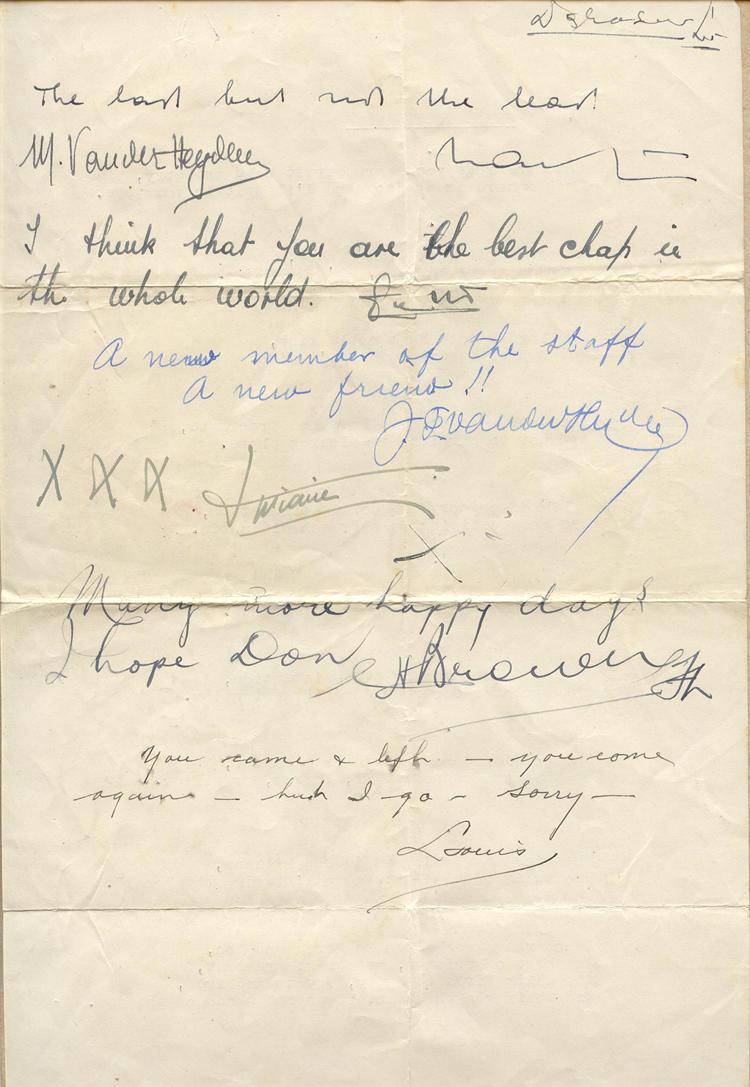 The last but not the least.
M. Vander Heyden
I think that you are the best chap in
the whole world.
A new member of the staff
A new friend!!
X X X
X
Many more happy days
I hope Don H Brown
You came & left – you come
again – but I go – Sorry –
Louis